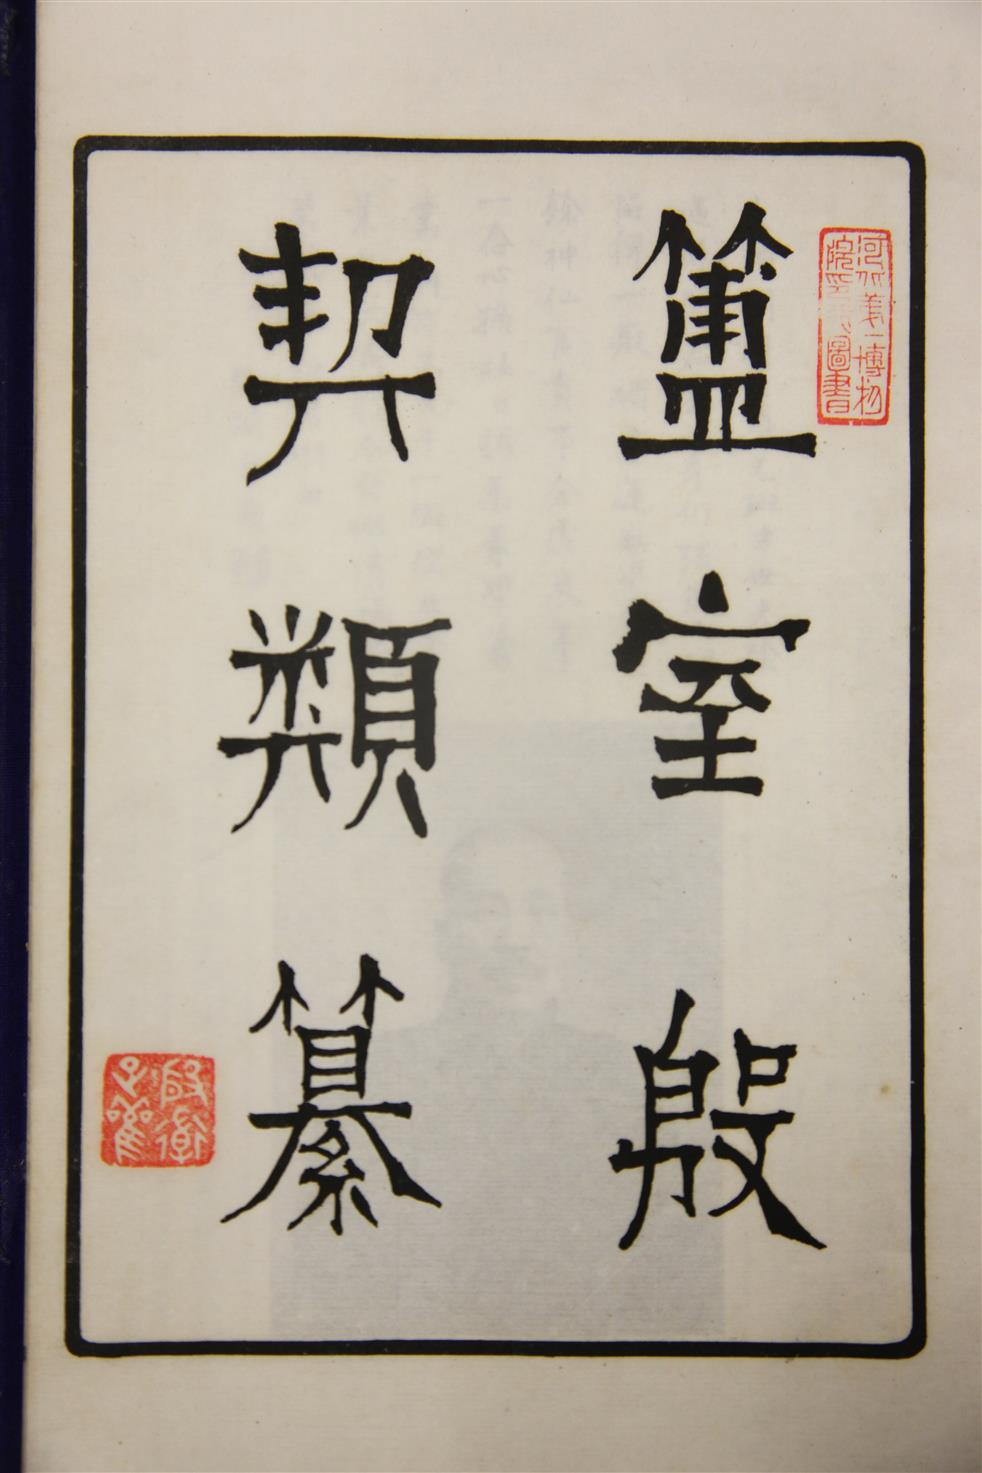 簠室殷
契類纂
河北第一博物
院圖書